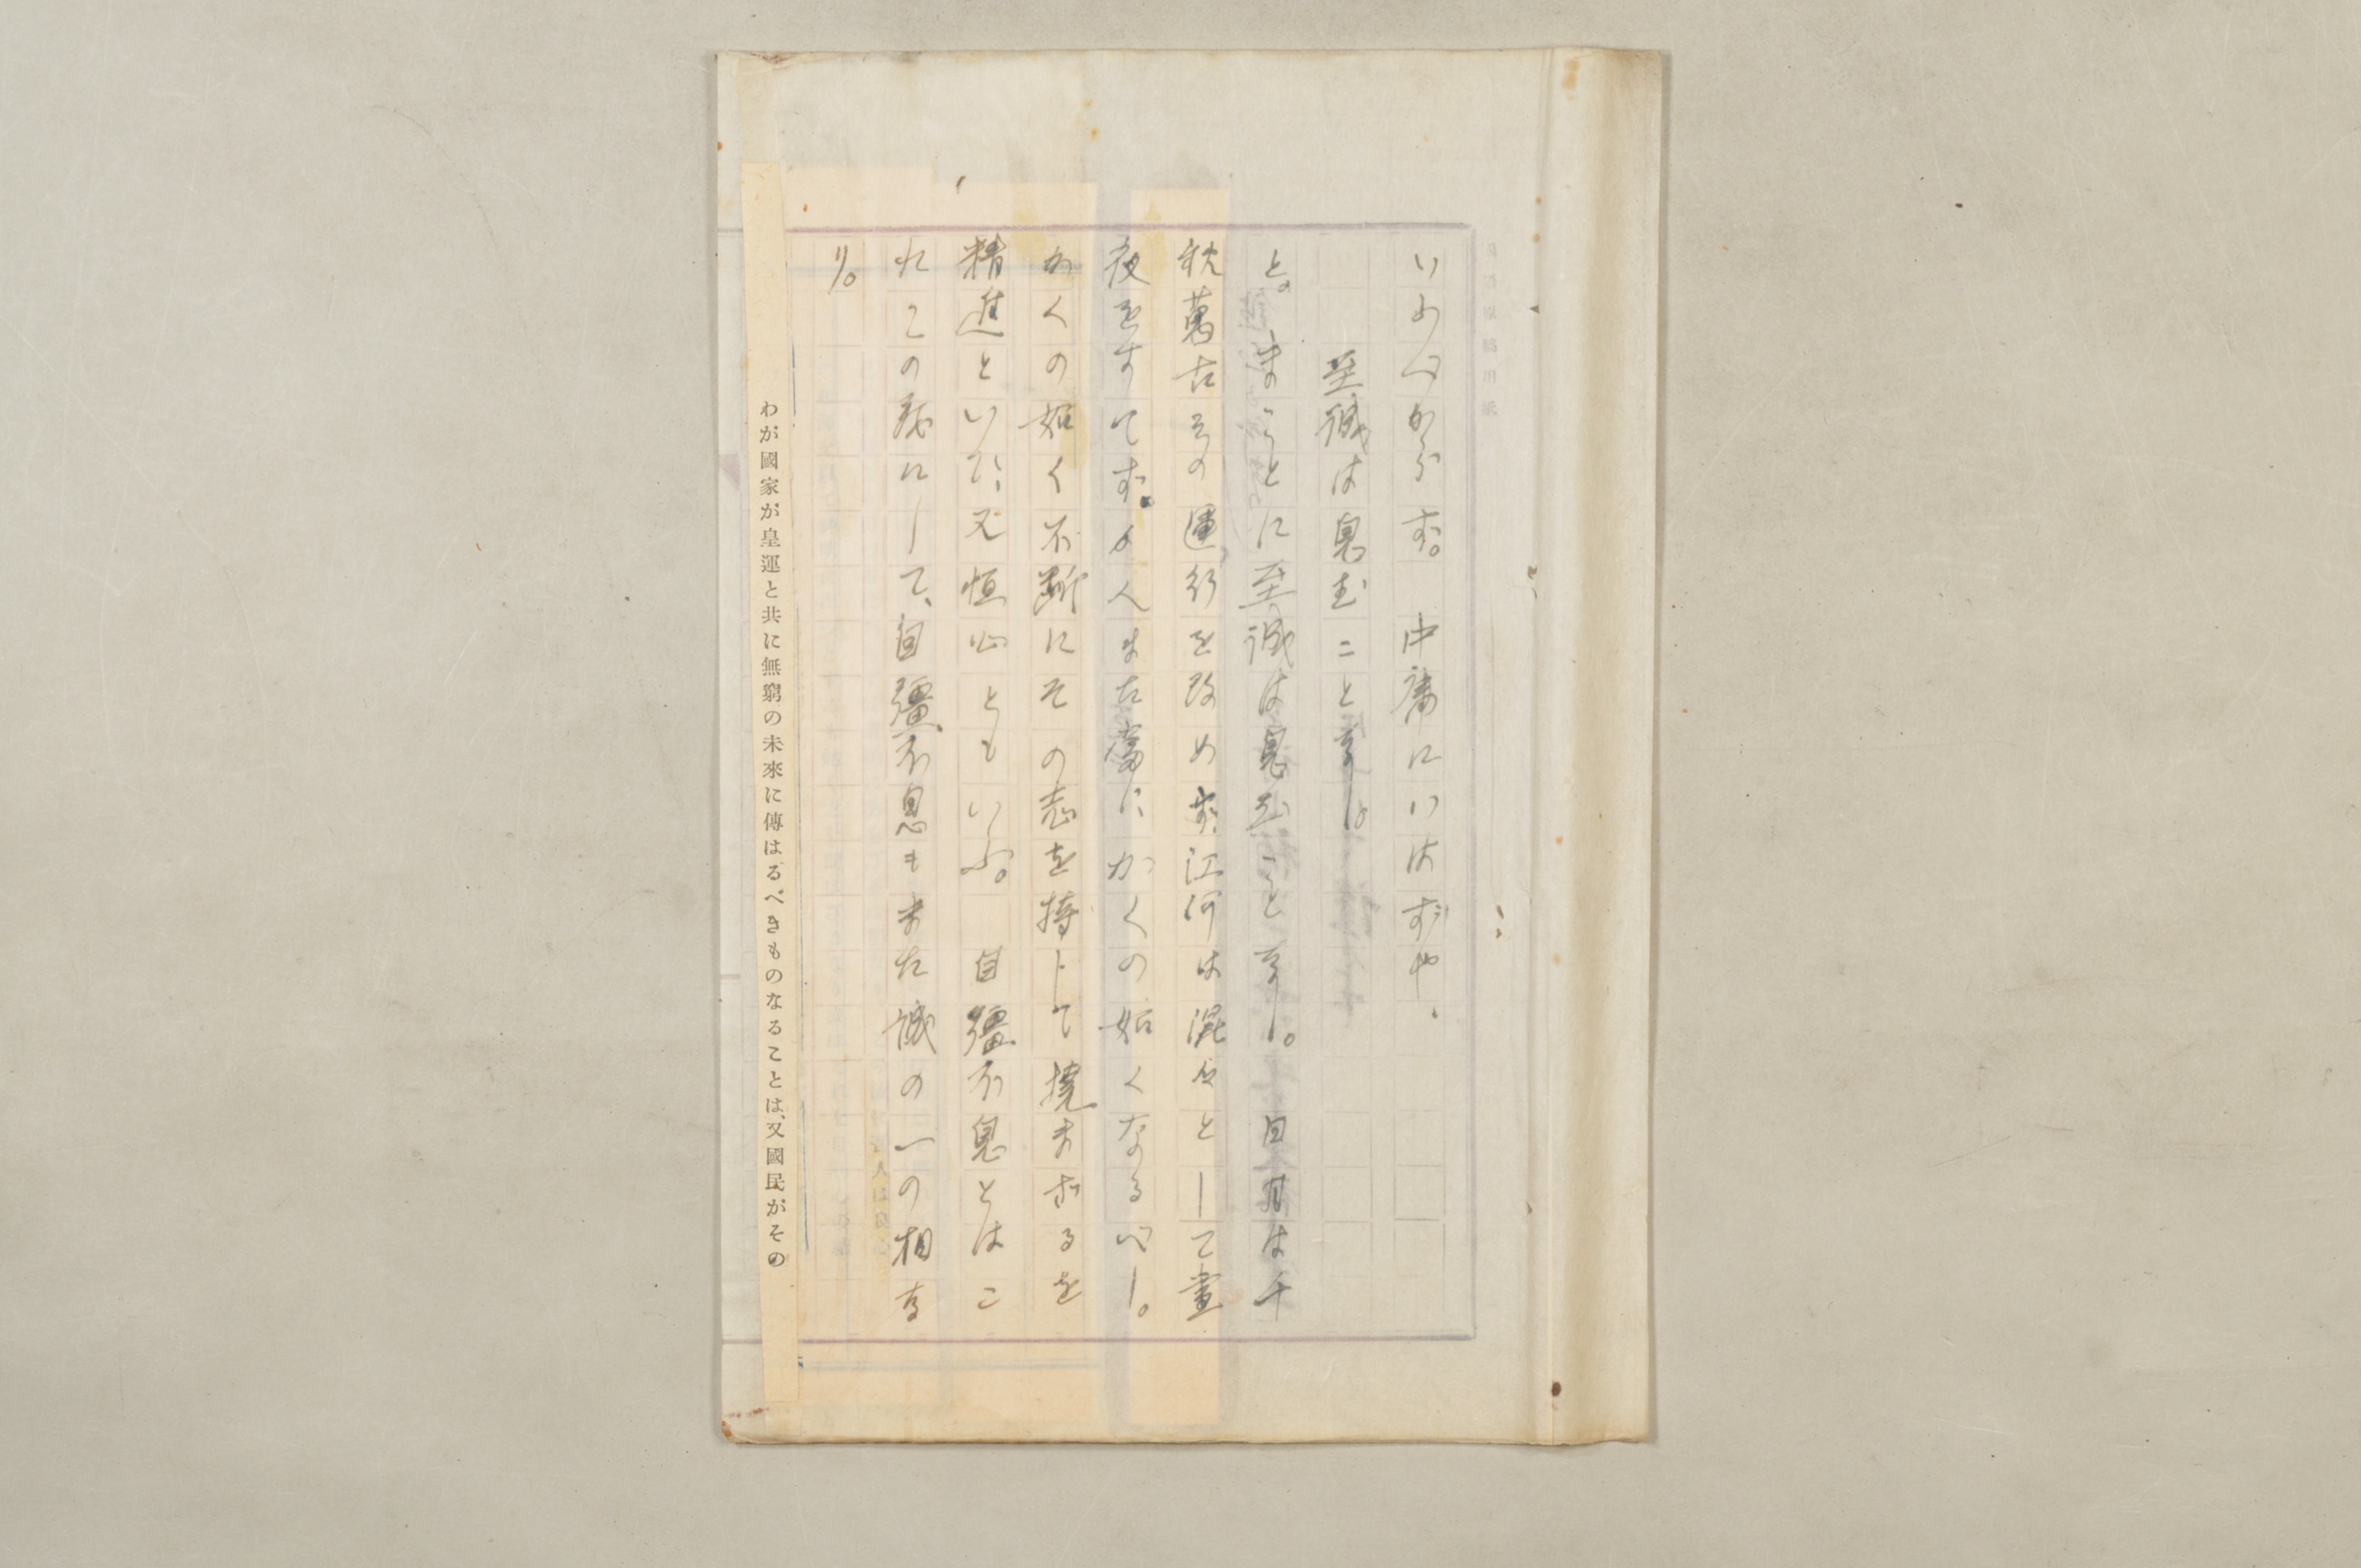 いふべからず。中庸にいはずや、
至誠は息むこと莫し。
と。まことに至誠は息むこと莫し。日月は千
秋萬古その運行を改めず、江河は混々として晝
夜をすてず。かへまた當にかくの如くなるべし。
かくの如く不斷にその志を持して撓まざるを
精進といひ、又恒心ともいふ。自彊不息とはこ
れこの意にして、自彊不息もまた誠の一の相な
り。
わが國家が皇運と共に無窮の未來に傳はるべきものなることは、又國民がその